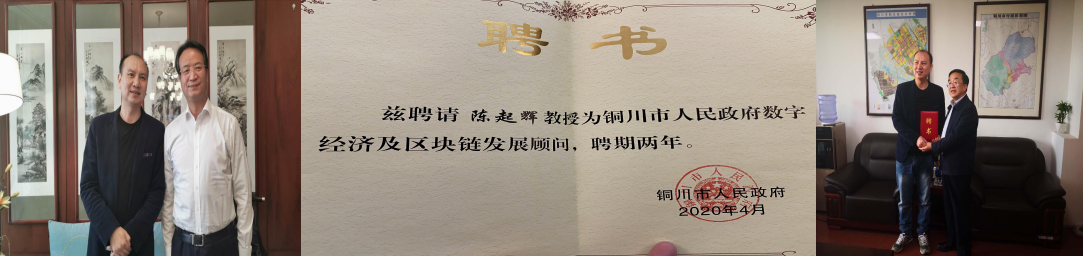 聘书
兹聘请 陈起辉 教授为铜川市人民政府数字
经济及区块链发展顾问，聘期两年。
铜川市人民政府
2020年4月
聘
书